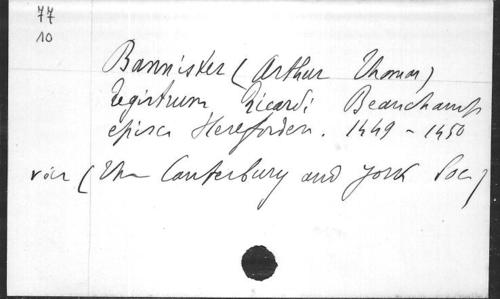 77
10
Bannister (Arthur Thomas)
Registrum Ricardi Beauchamp
episc. Hereforden. 1449 - 1450
voir (The Canterbury and York Soc)